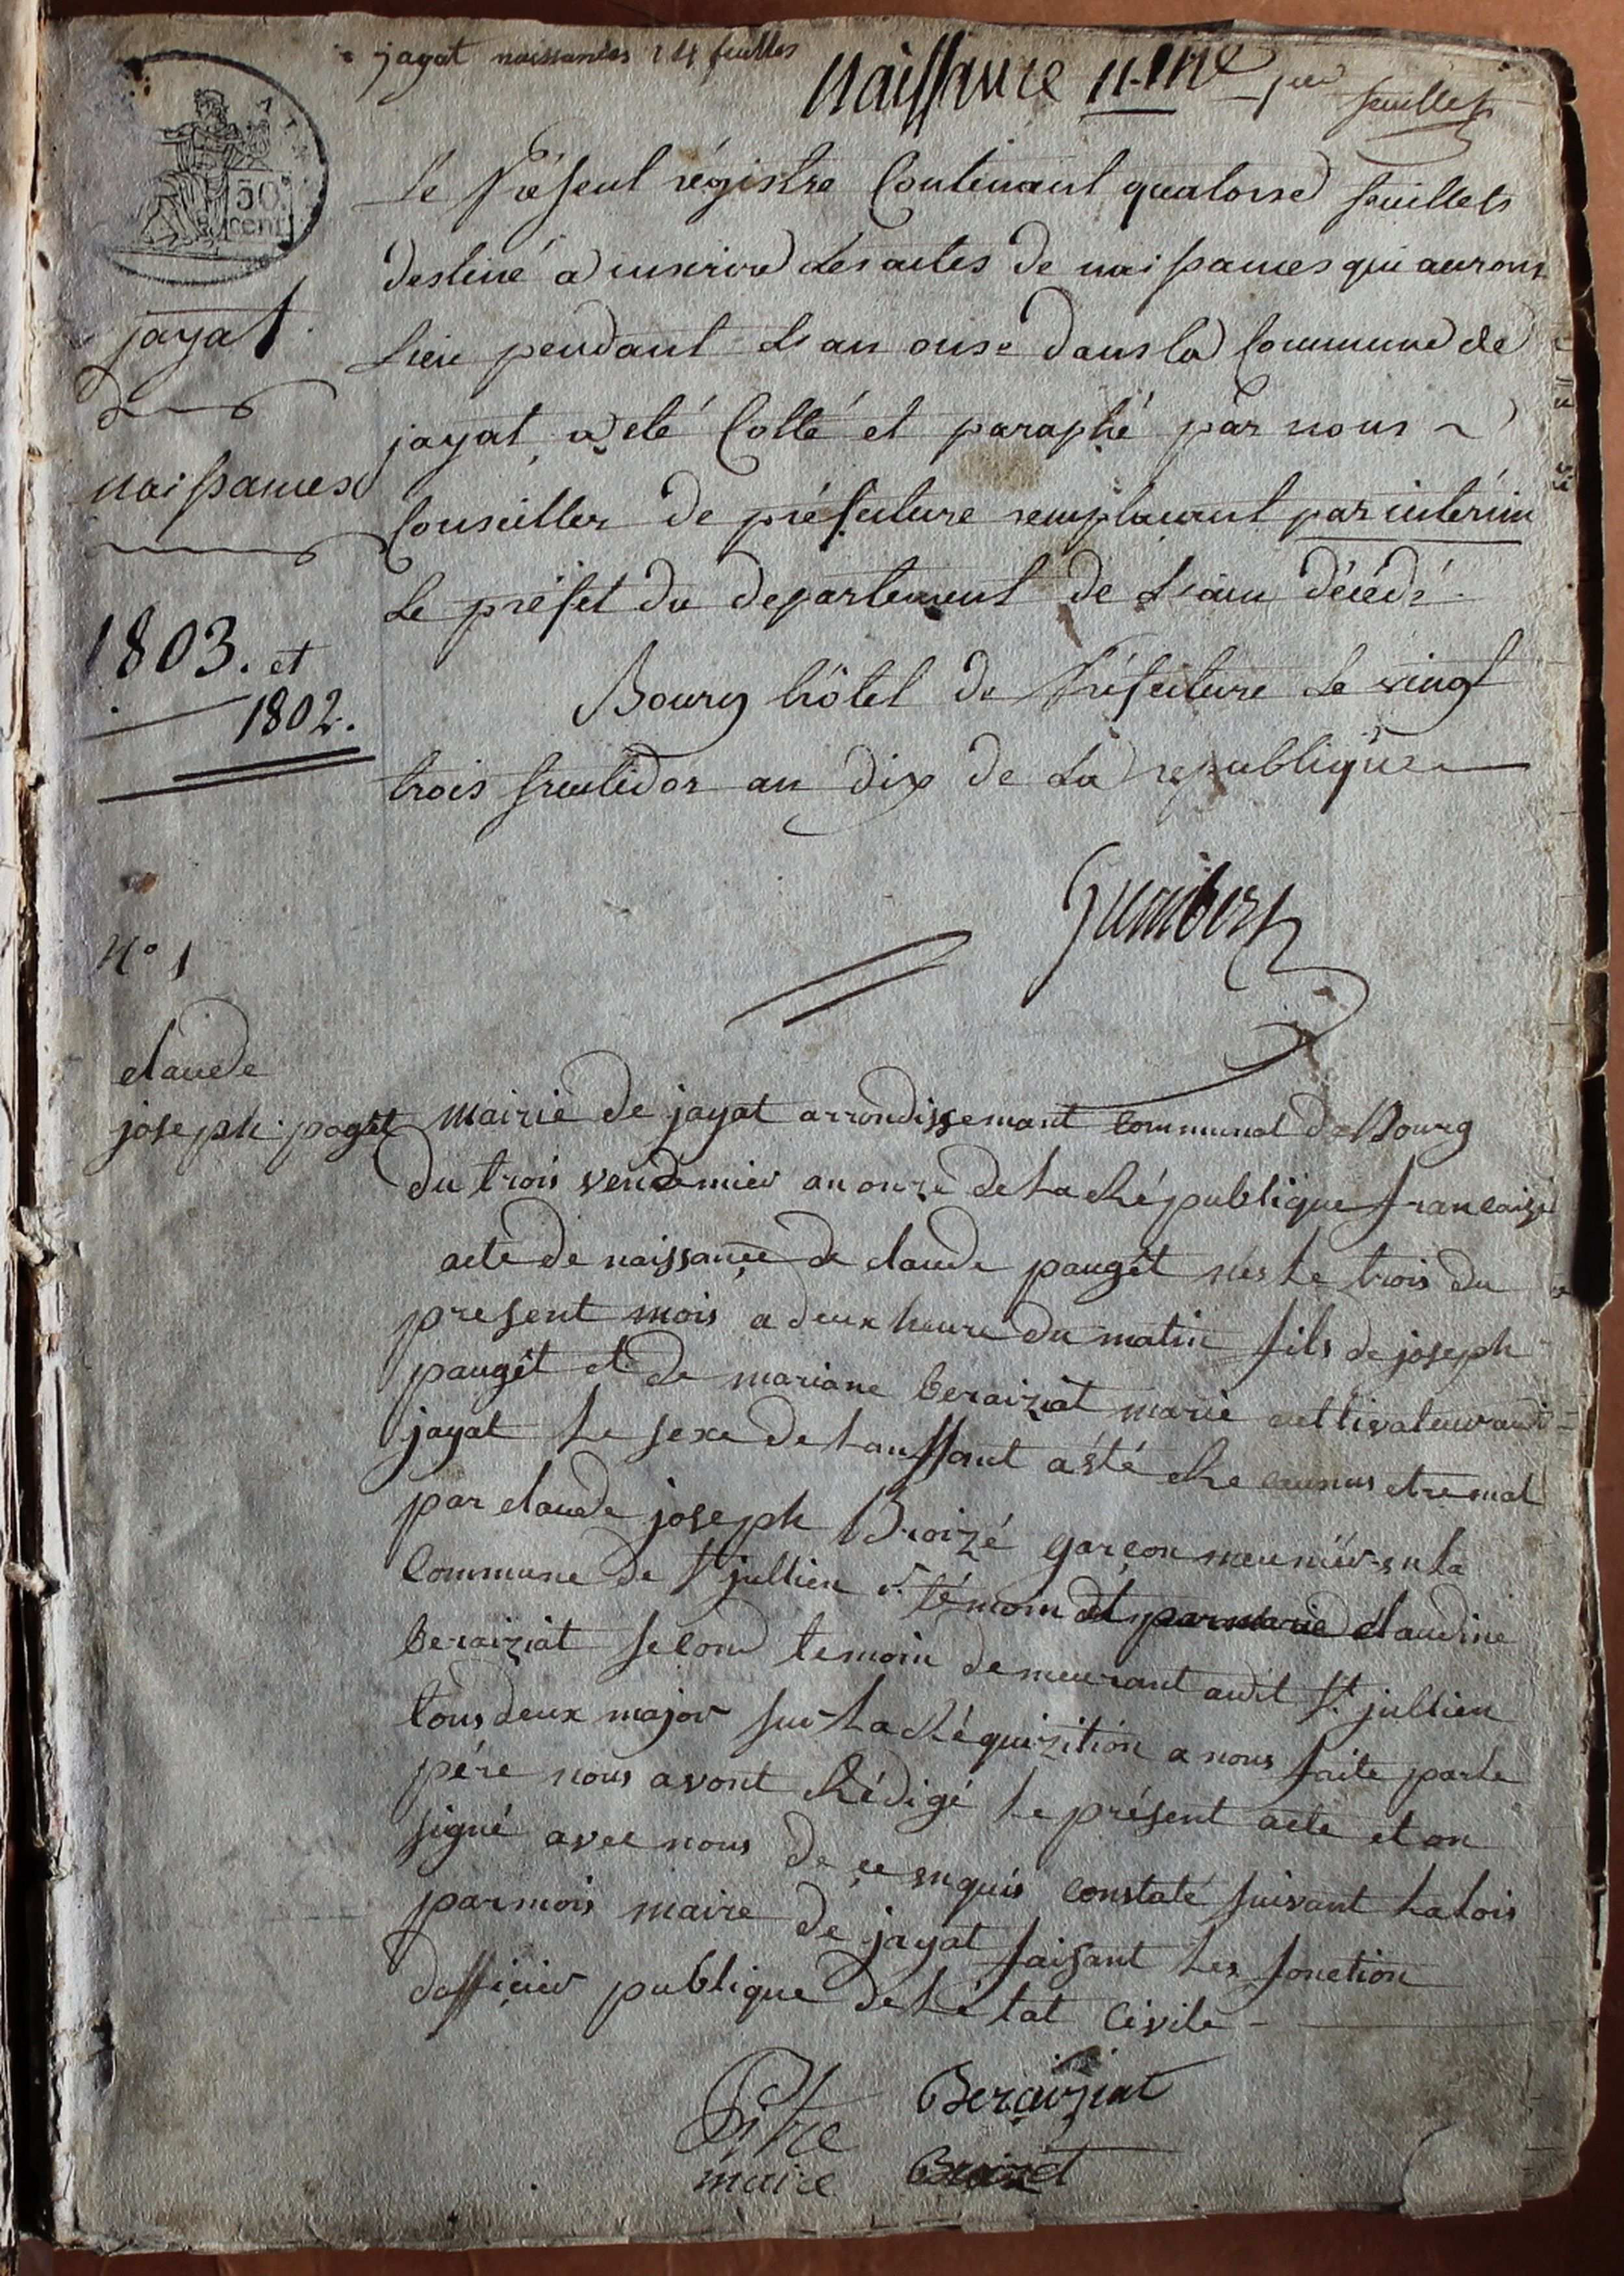 jayat naissances 14 feuilles
Naissance 11.me 1er feuillet
50
cent
Le Présent régistre Contenant quatorse feuillets
destiné a inscrire Les actes de naissances qui auront
Lieu pendant L'an onse dans la Commune de
jayat, a été Cotté et paraphé par nous
Conseiller de préfecture remplaçant par interim
Le préfet du departement de L'ain décédé.
Bourg hôtel de Préfecture Le vingt
trois fructidor an dix de La republique
jayat.
naissances
1803. et
1802.
Gumbert
N° 1
claude
joseph paget
Mairie de jayat arrondissemant Communal de Bourg
du trois vendemier an onze de La République francaise
acte de naissançe de claude pauget nés Le trois du
present mois a deux heure du matin fils de joseph
pauget et de mariane beraiziat marié cultivateur audi
jayat Le sexe de Lanffant a été Re Counus etre mal
par claude joseph Broizé garçon meuniér en La
Commune de St jullien 1r témoin et par marie claudine
beraiziat second temoin demeurant audit St jullien
tous deux major sur La Réquizition a nous faite par le
pére nous avont Rédigé Le présent acte et on
signé avec nous de çe enquis Constaté suivant La lois
par mois maire de jayat faisant Les fonction
dofficier publique de Létat Civile
Pitre Beraiziat
maire Broizet